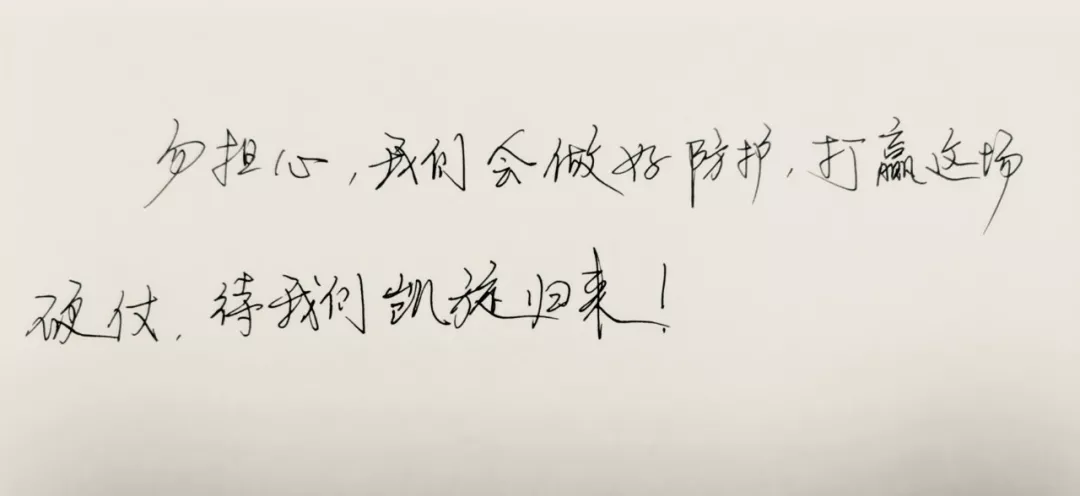 勿担心,我们会做好防护,打赢这场
硬仗,待我们凯旋归来!